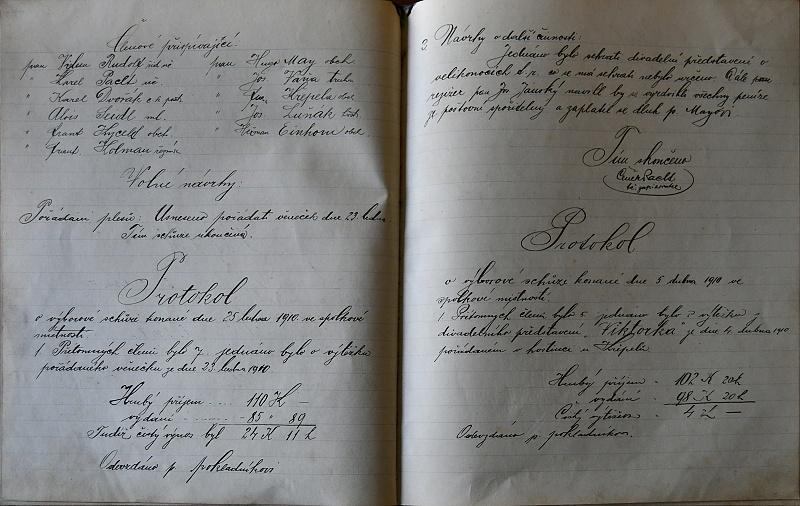 Členové přispívající.
pan Rudolf pan Hugo May obch.
" Karel Paclt " Jos Váňa truhl.
" Karel Dvořák " Křepela
" Alois Seidl ml. " Jos Luňák
" Frant obch. " Heřman Einhorn obch.
" Frant. Holman
Volné návrhy:
Pořádání plesů: Usneseno pořádat věneček dne 23. ledna
Tím schůze ukončena.
Protokol
o výborové schůzi konané dne 25 ledna 1910. ve spolkové
místnosti
1. Přítomných členů bylo 7. jednáno bylo o výtěžku
pořádaného věnečku je dne 23 ledna 1910
Hrubý příjem .... 110 K —
vydání ........ 85 " 89
Tudíž čistý výnos byl 24 K 11 h
Odevzdáno p. pokladníkovi
2. Návrhy o další činnosti:
Jednáno bylo sehrati divadelní představení o
velikonocích t. r. co se má sehrát nebylo určeno. Dále pan
režizer pan Jos Janský navrhl by se vyzdvihly všechny peníze
z poštovní spořitelny a zaplatil se dluh p. Mayovi
Tím skončeno
Čeněk Paclt
Protokol
o výborové schůze konané dne 5 dubna 1910 ve
spolkové místnosti.
1. Přítomných členů bylo 5 jednáno bylo o výtěžku
divadelního představení "Viktorka" je dne 4. dubna 1910
pořádaném v hostince u Křepelů
Hrubý příjem - 102 K 20 h
" vydání - 98 K 20 h
Čistý výnos 4 K —
Odevzdáno p. pokladníkovi.